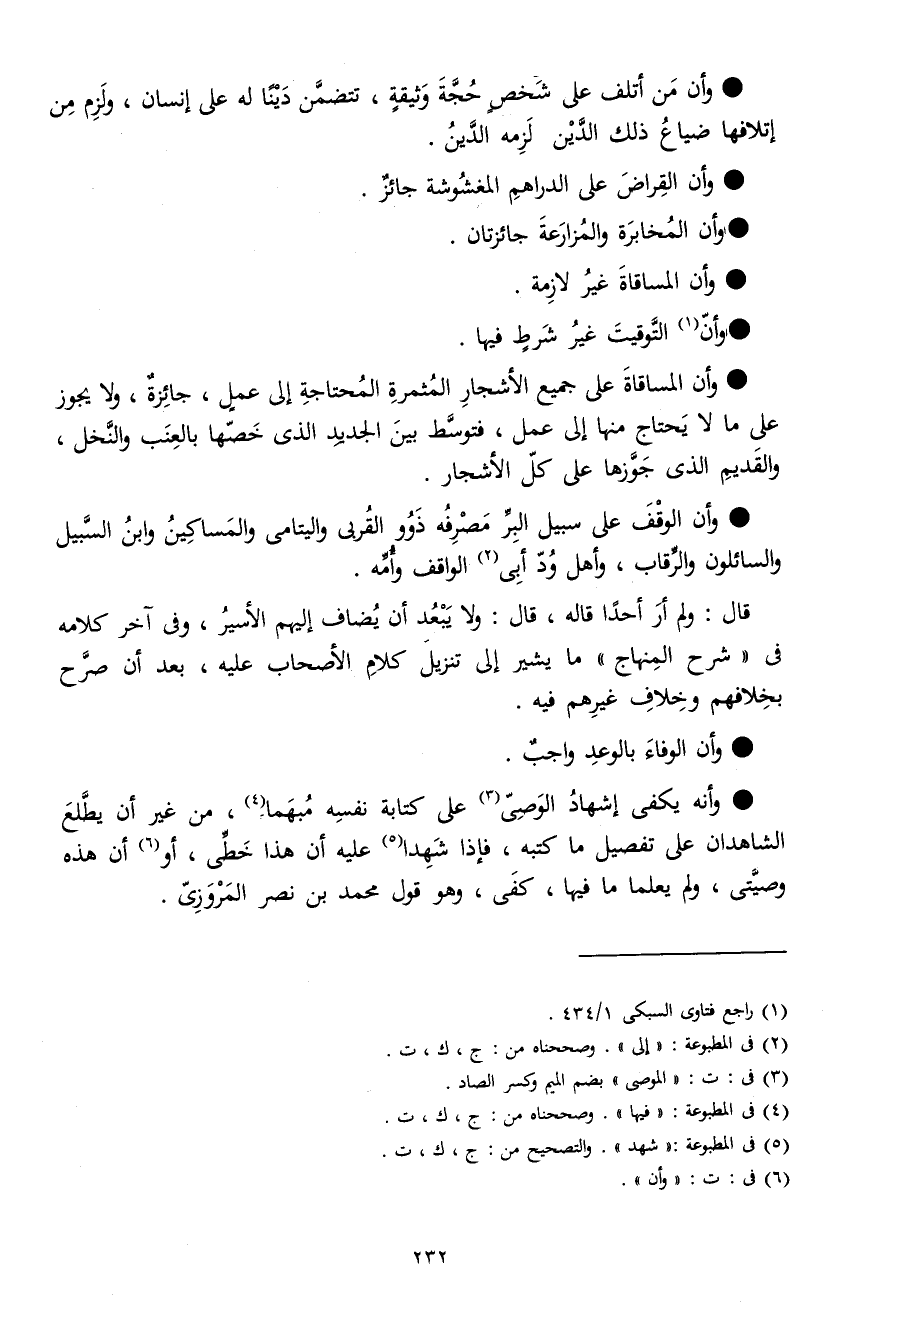 ● وأن مَن أتلف على شَخصٍ حُجَّةَ وَثيقةٍ ، تتضمَّن دَيْنًا له على إنسان ، ولَزِم مِن
إتلافها ضياعُ ذلك الدَّيْن لَزِمه الدَّينُ .
● وأن القِراضَ على الدراهمِ المغشُوشة جائزٌ .
● وأن المُخابرَة والمُزارَعةَ جائزتان .
● وأن المساقاةَ غيرُ لازِمة .
● وأنّ(١) التَّوقيتَ غيرُ شَرطٍ فيها .
● وأن المساقاةَ على جميع الأشجارِ المُثمرةِ المُحتاجةِ إلى عملٍ ، جائِزةٌ ، ولا يجوز
على ما لا يَحتاج منها إلى عمل ، فتوسَّط بينَ الجديدِ الذى خَصّها بالعِنَب والنَّخل ،
والقَديمِ الذى جَوَّزها على كلّ الأشجار .
● وأن الوقْفَ على سبيل البِرِّ مَصْرِفُه ذَوُو القُربى واليتامى والمَساكِينُ وابنُ السَّبيل
والسائلون والرِّقاب ، وأهل وُدّ أبَى(٢) الواقف وأُمِّه .
قال : ولم أرَ أحدًا قاله ، قال : ولا يَبْعُد أن يُضاف إليهم الأسيرُ ، وفى آخر كلامه
فى « شرح المِنهاج » ما يشير إلى تنزيل كلامِ الأصحاب عليه ، بعد أن صرَّح
بخِلافهم وخِلافِ غيرِهم فيه .
● وأن الوفاءَ بالوعدِ واجبٌ .
● وأنه يكفى إشهادُ الوَصِىّ(٣) على كتابة نفسِه مُبهَما(٤) ، من غير أن يطَّلعَ
الشاهدان على تفصيل ما كتبه ، فإذا شَهِدا(٥) عليه أن هذا خَطِّى ، أو(٦) أن هذه
وصيَّتى ، ولم يعلما ما فيها ، كفَى ، وهو قول محمد بن نصر المَرْوَزِىّ .
(١) راجع فتاوى السبكى ٤٣٤/١ .
(٢) فى المطبوعة : « إلى » . وصححناه من : ج ، ك ، ت .
(٣) فى : ت : « الموصى » بضم الميم وكسر الصاد .
(٤) فى المطبوعة : « فيها » . وصححناه من : ج ، ك ، ت .
(٥) فى المطبوعة :« شهد » . والتصحيح من : ج ، ك ، ت .
(٦) فى : ت : « وأن » .
٢٣٢